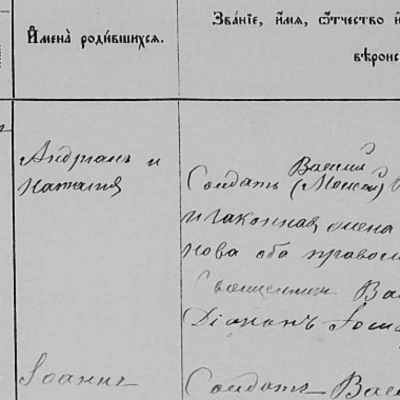 Имена̀ роди́вшихся.
Зва́нїе, и҆́мѧ, ѻ҆́тчество и҆
вѣрои
Андріанъ и
Наталія
Василій
Солдатъ (Моисей)
и законная жена
нова оба правосл
Священникъ Ва
Діаконъ
Іоаннъ
Солдатъ Васи